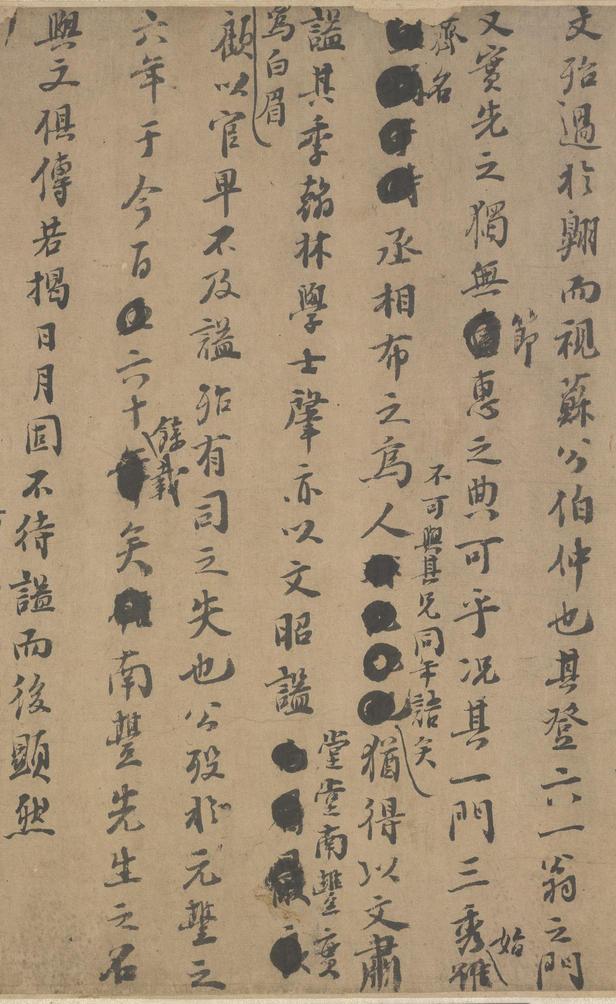 文殆過於翺而視蘇公伯仲也其登六一翁之門
又實先之獨無節惠之典可乎況其一門三秀
始
齊名
丞相布之為人不可與其兄同年語矣猶得以文肅
諡其季翰林學士肇亦以文昭諡堂堂南豐實
為白眉
顧以官卑不及諡殆有司之失也公歿於元豐之
六年于今百六十餘載矣南豐先生之名
與文俱傳若揭日月固不待諡而後顯然